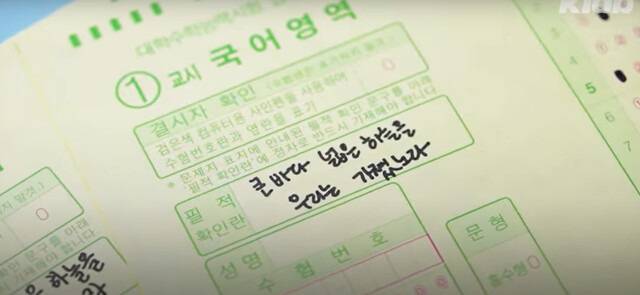 Klab
대학수학능력시험
① 교시 국어영역
결시자 확인
검은색 컴퓨터용 사인펜을 사용하여
수험번호란과 옆란을 표기
* 문제지 표지에 안내된 필적 확인 문구를 아래
'필적 확인란'에 정자로 반드시 기재해야 합니다
필적
확인란
큰 바다 넓은 하늘을
우리는 가졌노라
성명
수험번호
문형
홀수형
확인 문구를 아래
재해야 합니다
은 하늘을
5